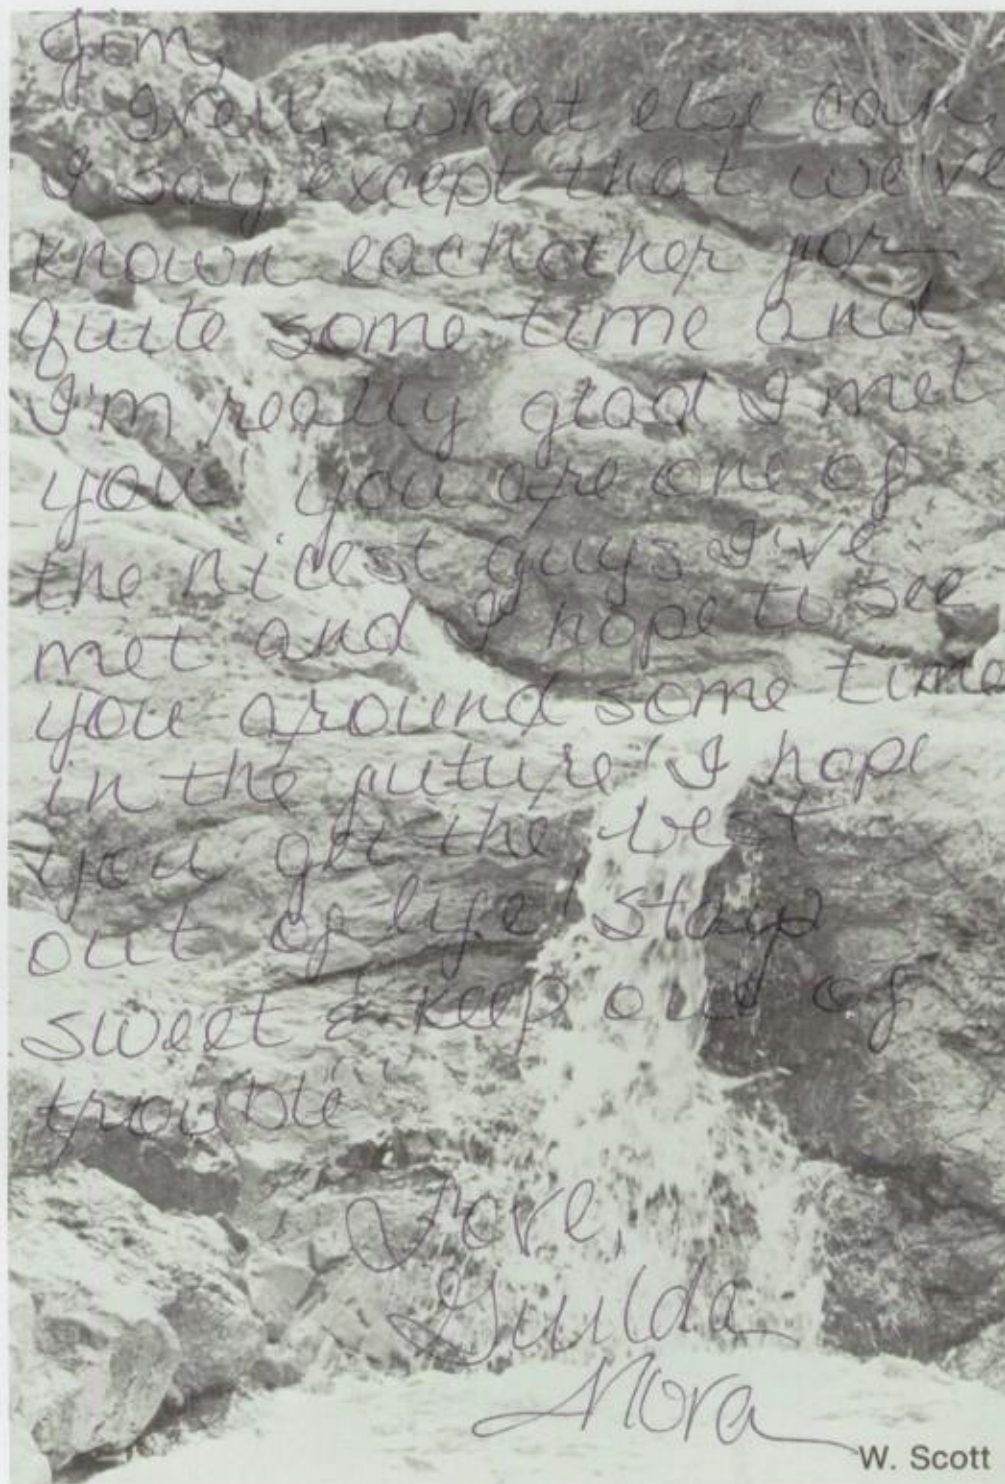 Jim,
what else can
I say except that we've
known eachother for
quite some time and
I'm really glad I met
you! you are one of
the nicest guys I've
met and I hope to see
you around some time
in the future! I hope
you get the best
out of life! Stay
sweet & keep out of
trouble
Love,
Nora
W. Scott